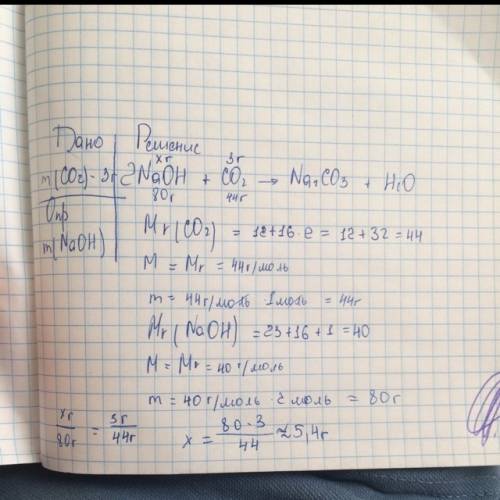 Дано Решение
xг 3г
m(CO2)-3г 2NaOH + CO2 → Na2CO3 + H2O
80г 44г
Опр
Mr(CO2) = 12+16·2 = 12+32 = 44
m(NaOH)
M = Mr = 44г/моль
m = 44г/моль · 1моль = 44г
Mr(NaOH) = 23+16+1 = 40
M = Mr = 40г/моль
m = 40г/моль · 2 моль = 80г
xг/80г = 3г/44г x = 80·3/44 ≈5,4г